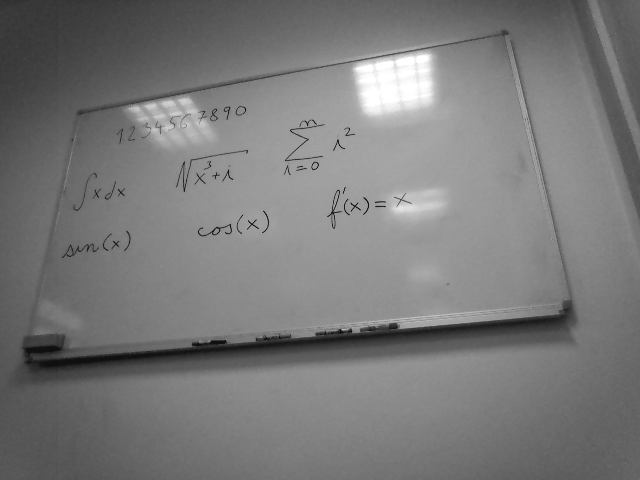 1234567890
∫xdx √(x³+i) ∑_{i=0}^{n} i²
sin(x) cos(x) f'(x)=x